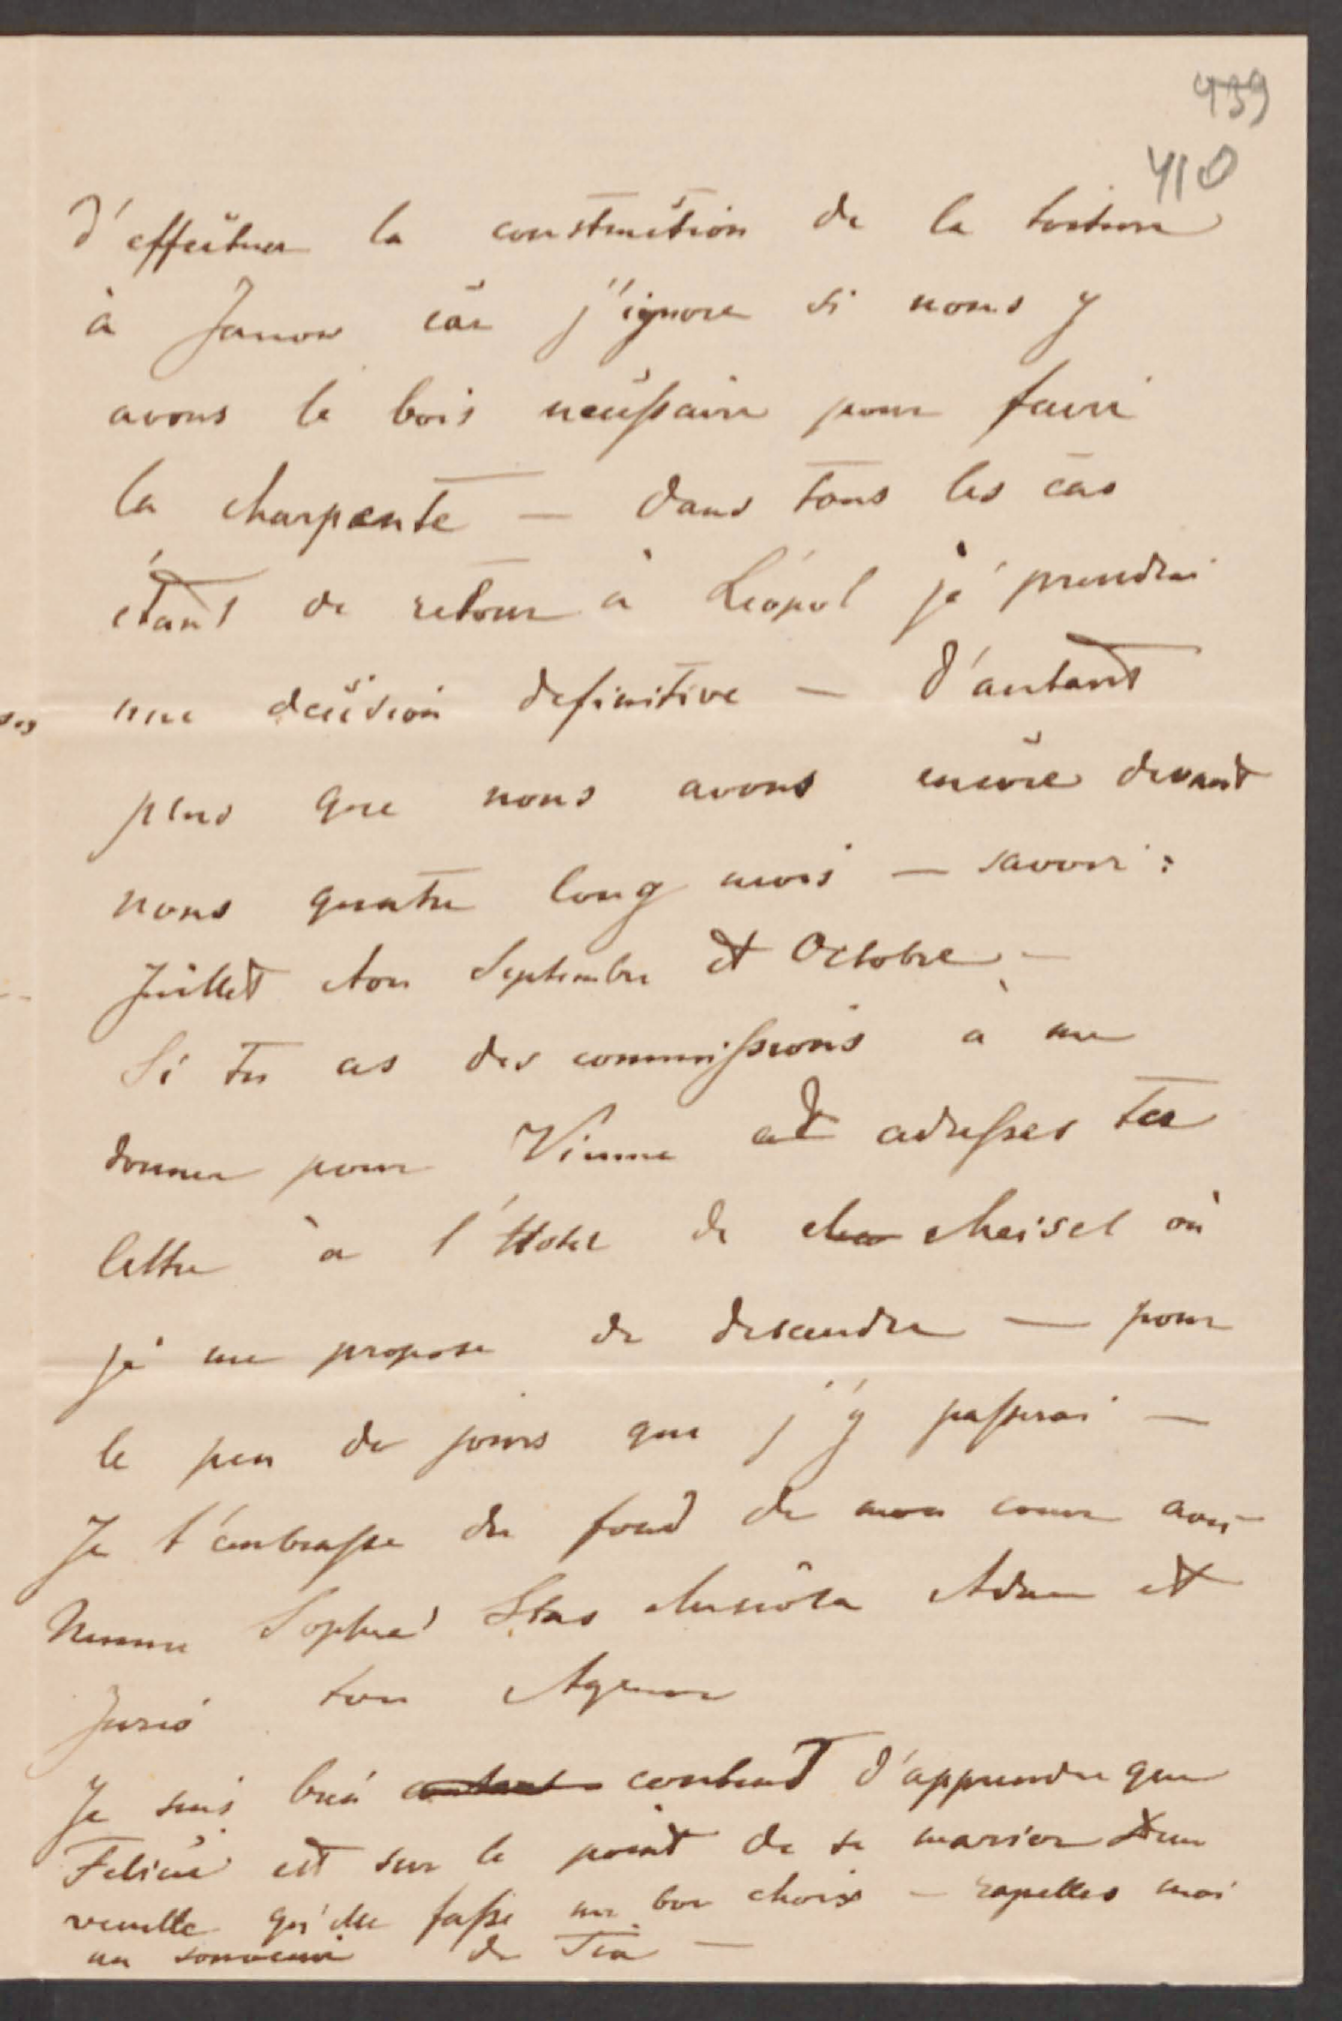 439
410
d'effectuer la construction de la toiture
à Janow car j'ignore si nous y
avons le bois necessaire pour faire
la charpente — dans tous les cas
étant de retour à Léopol je prendrai
une decision definitive — d'autant
plus que nous avons encore devant
nous quatre long mois — savoir:
Juillet Aou Septembre et Octobre —
Si tu as des commissions à me
donner pour Vienne adresses ta
lettre à l'Hotel de Meisel où
je me propose de descendre — pour
le peu de jours que j'y passerai —
Je t'embrasse du fond de mon coeur avec
Sophie Stas Adam et
Jusio ton
Je suis bien content d'apprendre que
Felicie est sur le point de se marier Dieu
veuille qu'elle fasse un bon choix — rapelles moi
au souvenir de Tia —